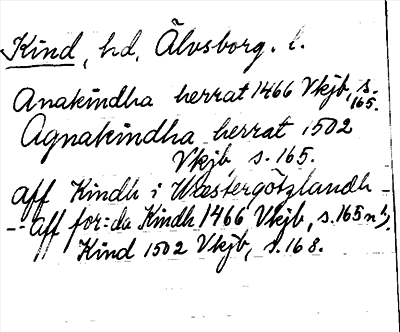 Kind, hd, Älvsborg. l.
Anakindha herrat 1466 Vkjb, s. 165.
Agnakindha herrat 1502
Vkjb, s. 165.
aff Kindh i Wæstergötzlandh -
- aff for:da Kindh 1466 Vkjb, s. 165 n
Kind 1502 Vkjb, s. 168.